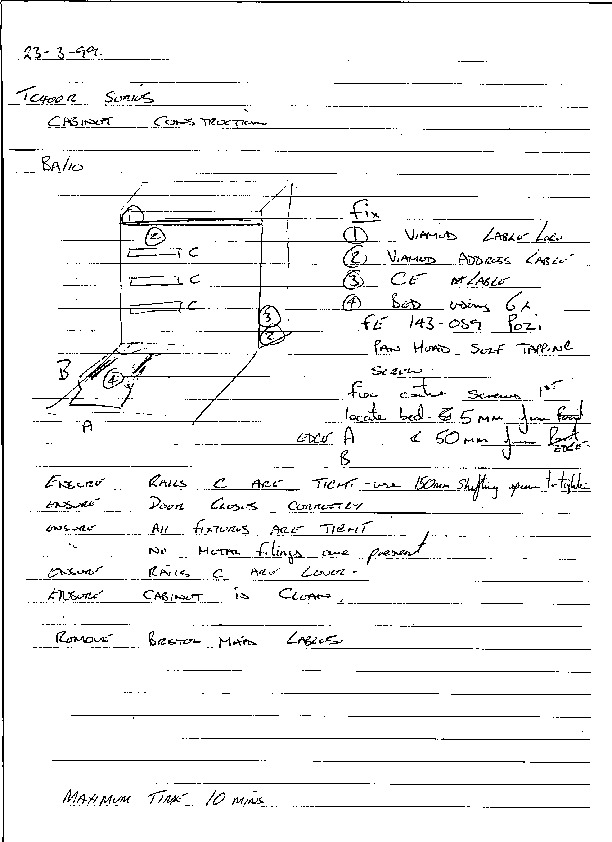 23-3-99.
SERIES
CABINET CONSTRUCTION
BA/10
fix
① ① VIAMED LABLE LOGO
② ② VIAMED ADDRESS LABLE
C
③ CE LABLE
C
④ BED USING 6 x
C
FE 143-059 POZI
③
PAN HEAD SELF TAPPING
②
SCREW.
B ④
Fix centre screws 1st
locate bed 5 mm from Front
A
EDGE A & 50 mm from Front EDGE.
B
ENSURE RAILS C ARE TIGHT - use 150mm Shifting spanner to tighten
ENSURE DOOR CLOSES CORRECTLY
ENSURE All FIXTURES ARE TIGHT
" NO METAL filings are present
ENSURE RAILS C ARE LEVEL.
ENSURE CABINET is CLEAN.
REMOVE BRISTOL MAID LABLES
MAXIMUM TIME 10 MINS